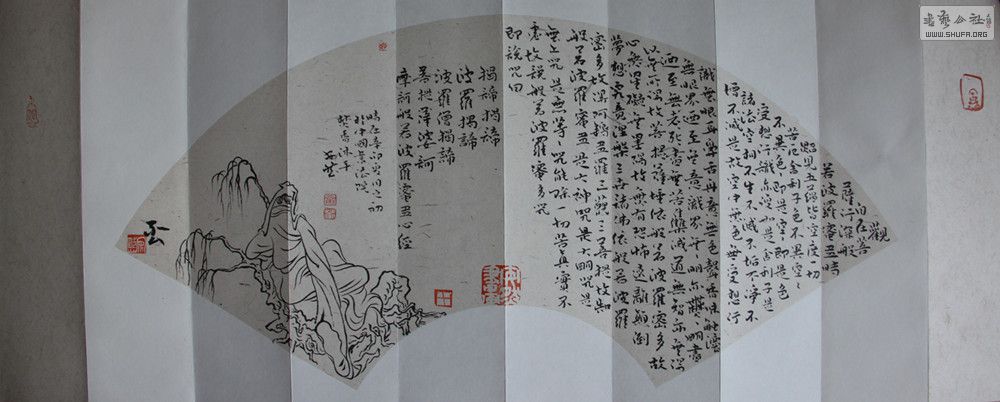 觀
自在菩
薩行深般
若波羅蜜多時
照見五蘊皆空度一切
苦厄舍利子色不異空空
不異色色即是空空即是色
受想行識亦復如是舍利子是
諸法空相不生不滅不垢不淨不
增不減是故空中無色無受想行
識無眼耳鼻舌身意無色聲香味觸法
無眼界乃至無意識界無無明亦無無明盡
乃至無老死盡無苦集滅道無智亦無得
以無所得故菩提薩埵依般若波羅蜜多故
心無罣礙無罣礙故無有恐怖遠離顛倒
夢想究竟涅槃三世諸佛依般若波羅
蜜多故得阿耨多羅三藐三菩提故知
般若波羅蜜多是大神咒是大明咒是
無上咒是無等等咒能除一切苦真實不
虛故說般若波羅蜜多咒
即說咒曰
揭諦揭諦
波羅揭諦
波羅僧揭諦
菩提薩婆訶
摩訶般若波羅蜜多心經
WWW.SHUFA.ORG